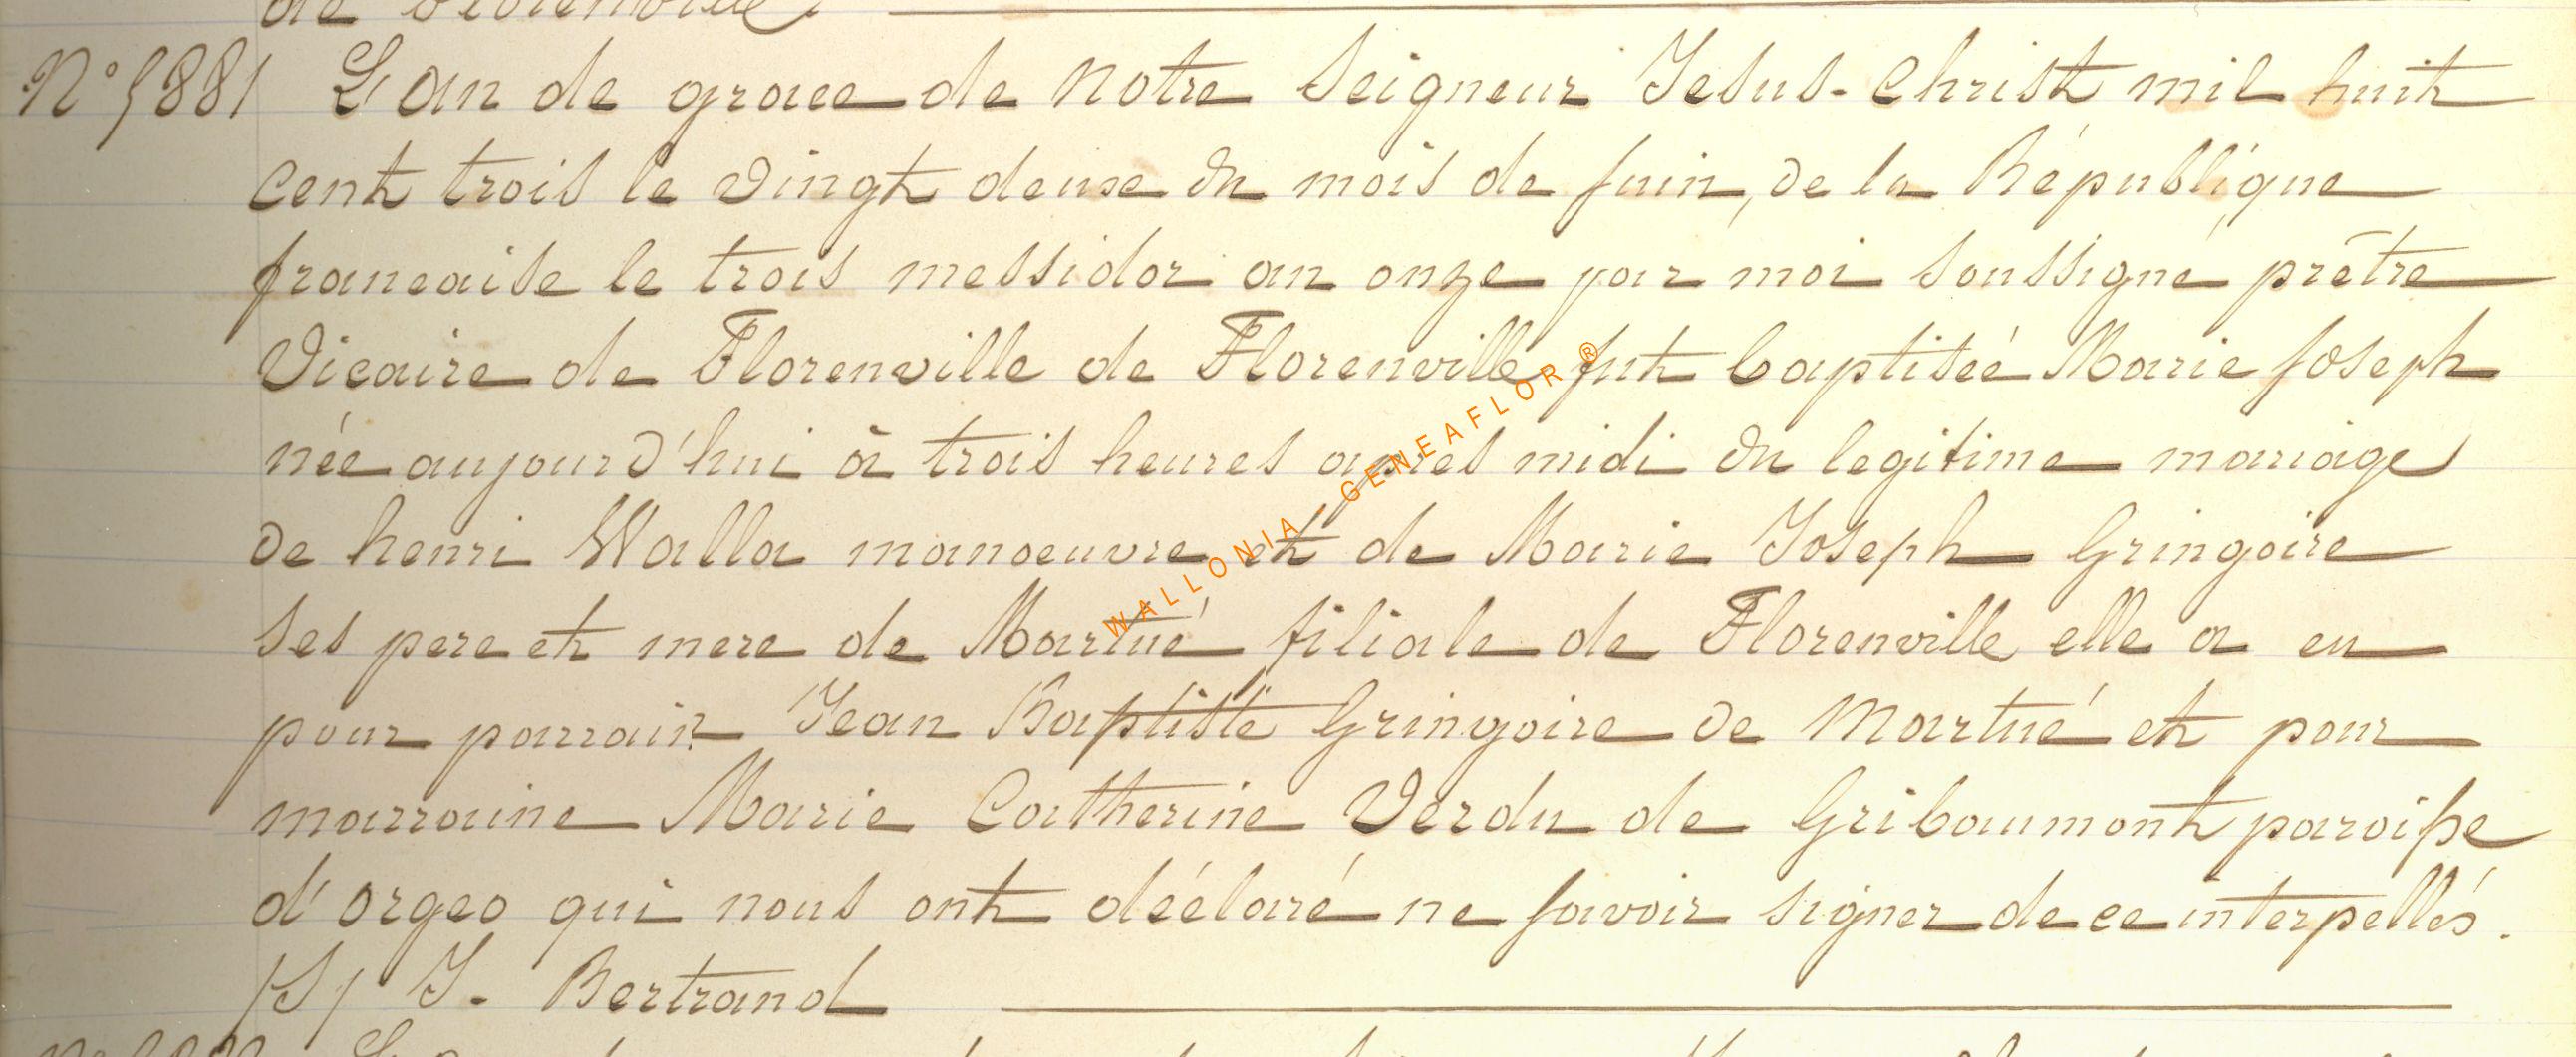 de Florenville.
N° 5881 L'an de grace de Notre Seigneur Jesus-Christ mil huit
cent trois le vingt deuxe du mois de Juin, de la République
francaise le trois messidor an onze par moi soussigné prêtre
Vicaire de Florenville de Florenville fut baptiseé Marie Joseph
née aujourd'hui à trois heures apres midi du legitime mariage
de henri Walla manoeuvre et de Marie Joseph Gringoire
ses pere et mere de Martué filiale de Florenville elle a eu
pour parrain Jean Baptiste Gringoire de Martué et pour
marraine Marie Catherine Verdu de Gribaumont paroisse
d'orgeo qui nous ont déclaré ne savoir signer de ce interpellés.
/S/ J. Bertrand
WALLONIA GENEAFLOR®